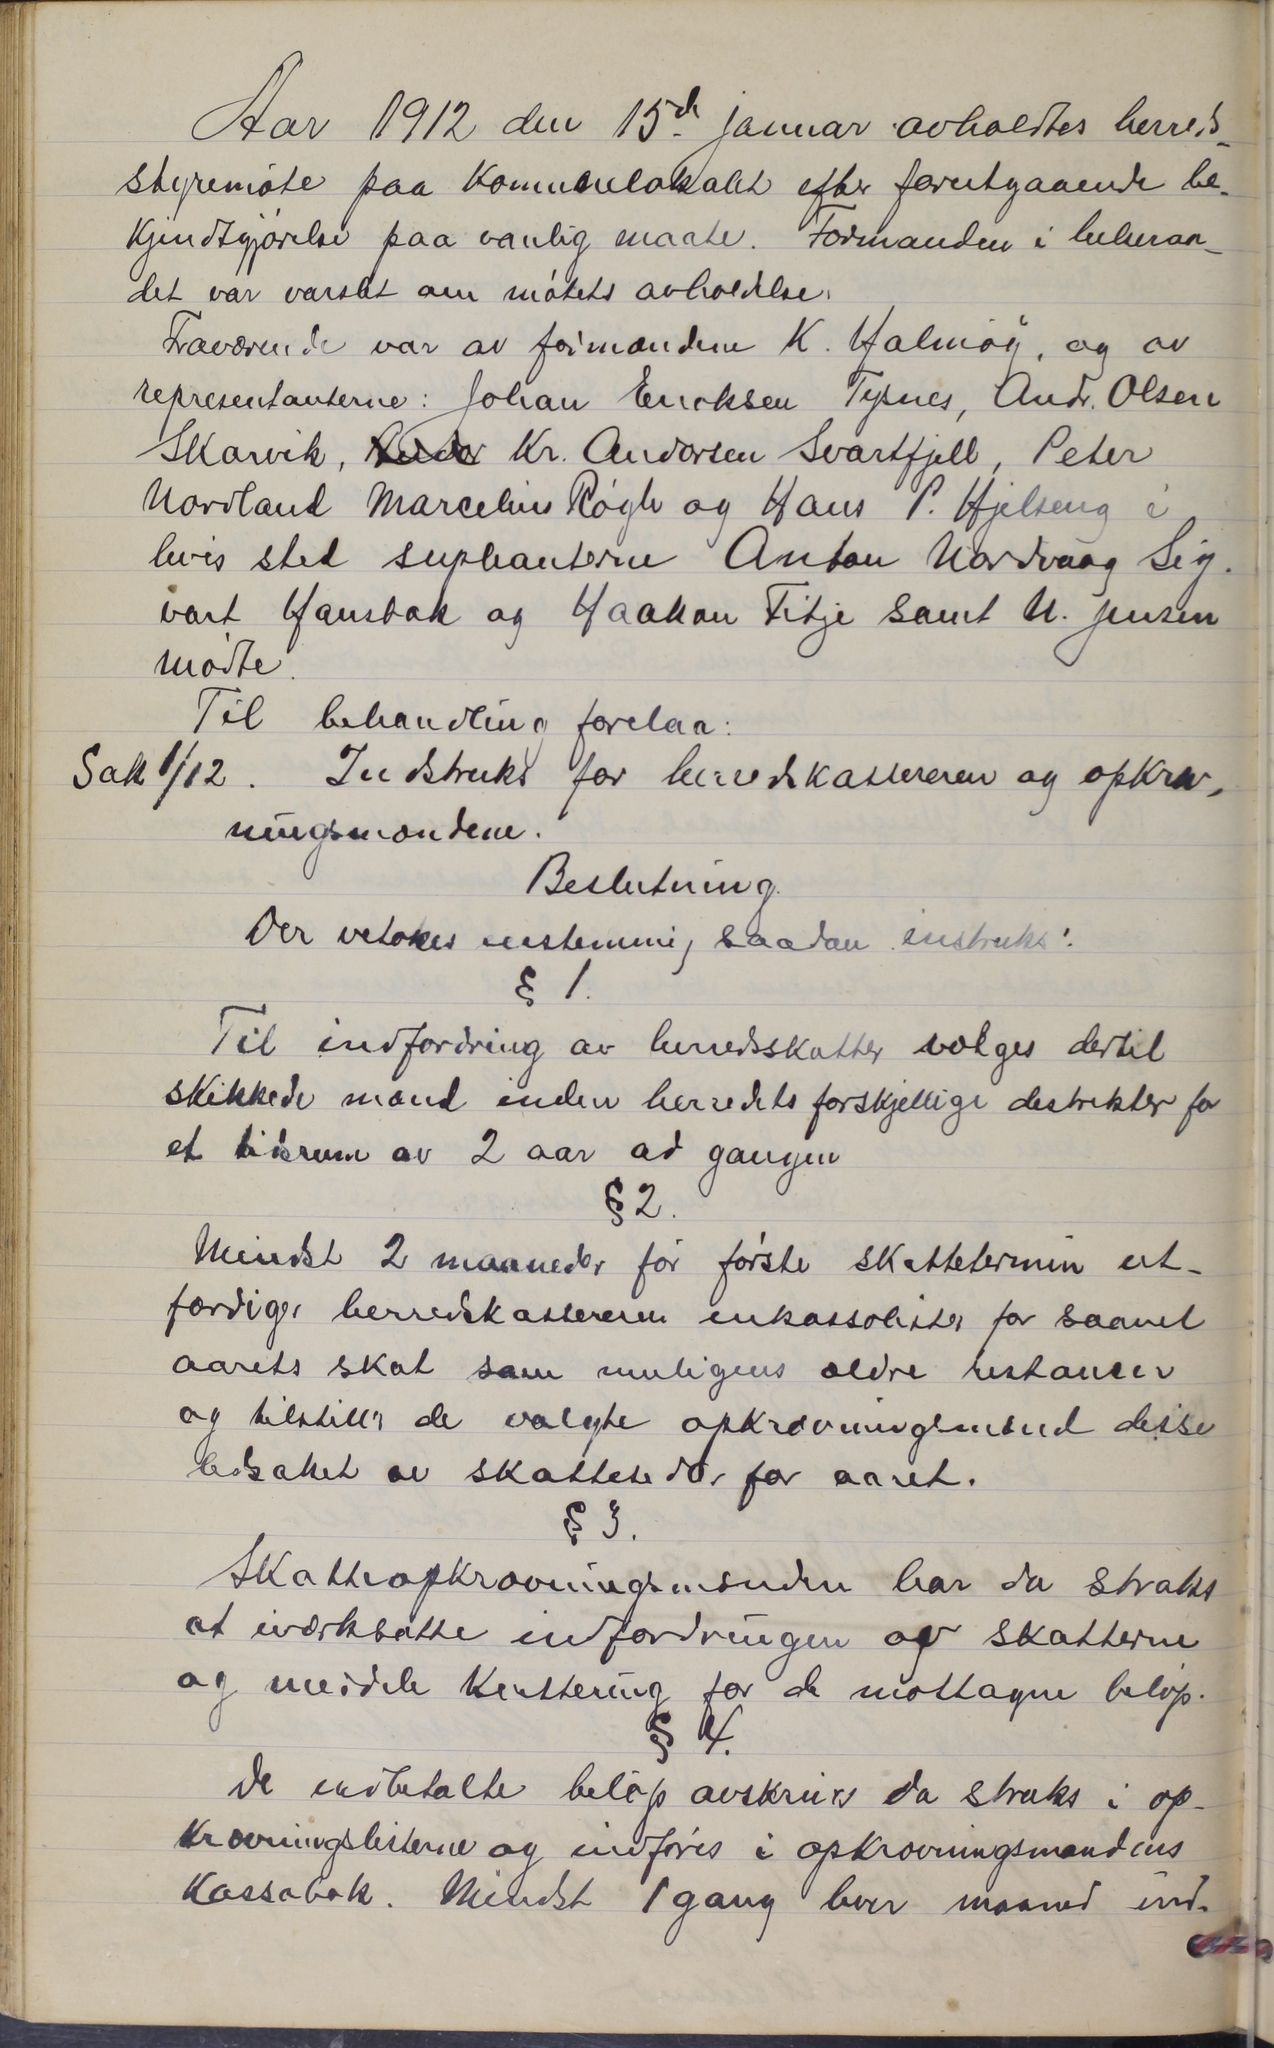 Aar 1912 den 15de januar avholdtes herreds-
styremøte paa Kommunelokalet efter forutgaaende be-
kjendtgjørelse paa vanlig maate. Formanden i
det var varslet om møtets avholdelse.
Fraværende var av formændene K. Halmøy, og av
representanterne: Johan Enoksen Tysnes, Andr. Olsen
Skarvik, Kr. Andersen Svartfjell, Peter
Nordland Marcelius Røgle og Hans P. Hjelseng i
hvis sted suplianterne Anton Nordvaag Sig.
vart Hansbak og Haakon Fitje samt N. Jensen
mødte.
Til behandling forelaa:
Sak 1/12. Indstruks for herredskassereren og opkræv,
ningsmændene.
Beslutning.
Der vetokes enstemmig saadan instruks:
§ 1.
Til indfordring av herredsskatter vælges dertil
skikkede mænd inden herredets forskjellige destrikter for
et tidsrum av 2 aar ad gangen
§ 2.
Mindst 2 maaneder før første skattetermin ut-
færdiger herredskassereren inkassolister for saavel
aarets skat som muligens ældre restanser
og tilstiller de valgte opkrævningsmænd disse
ledsaket av skattesedler for aaret.
§ 3.
Skatteopkrævningsmænden har da straks
at iværksætte indfordringen av skatterne
og meddele kvittering for de mottagne beløp.
§ 4.
De indbetalte beløp avskrives da straks i op-
krævningslisterne og indføres i opkrævningsmandens
Kassabok. Mindst 1 gang hver maaned ind-